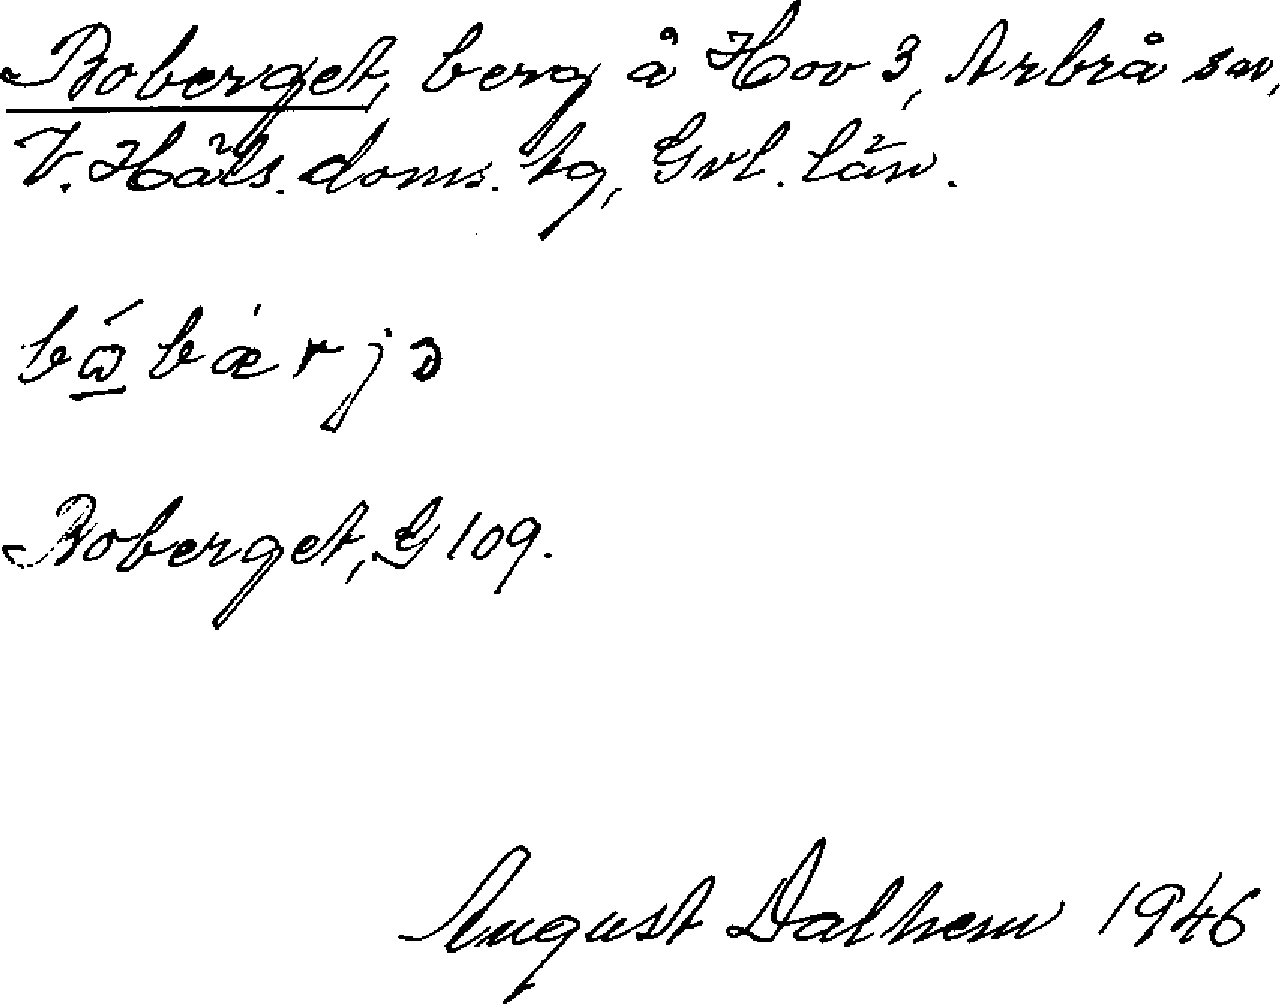 Boberget, berg å Hov 3, Arbrå sn,
V. Häls. doms. tg, Gvl. län.
bώ̲bæ̀rjə
Boberget, G 109.
August Dalhem 1946